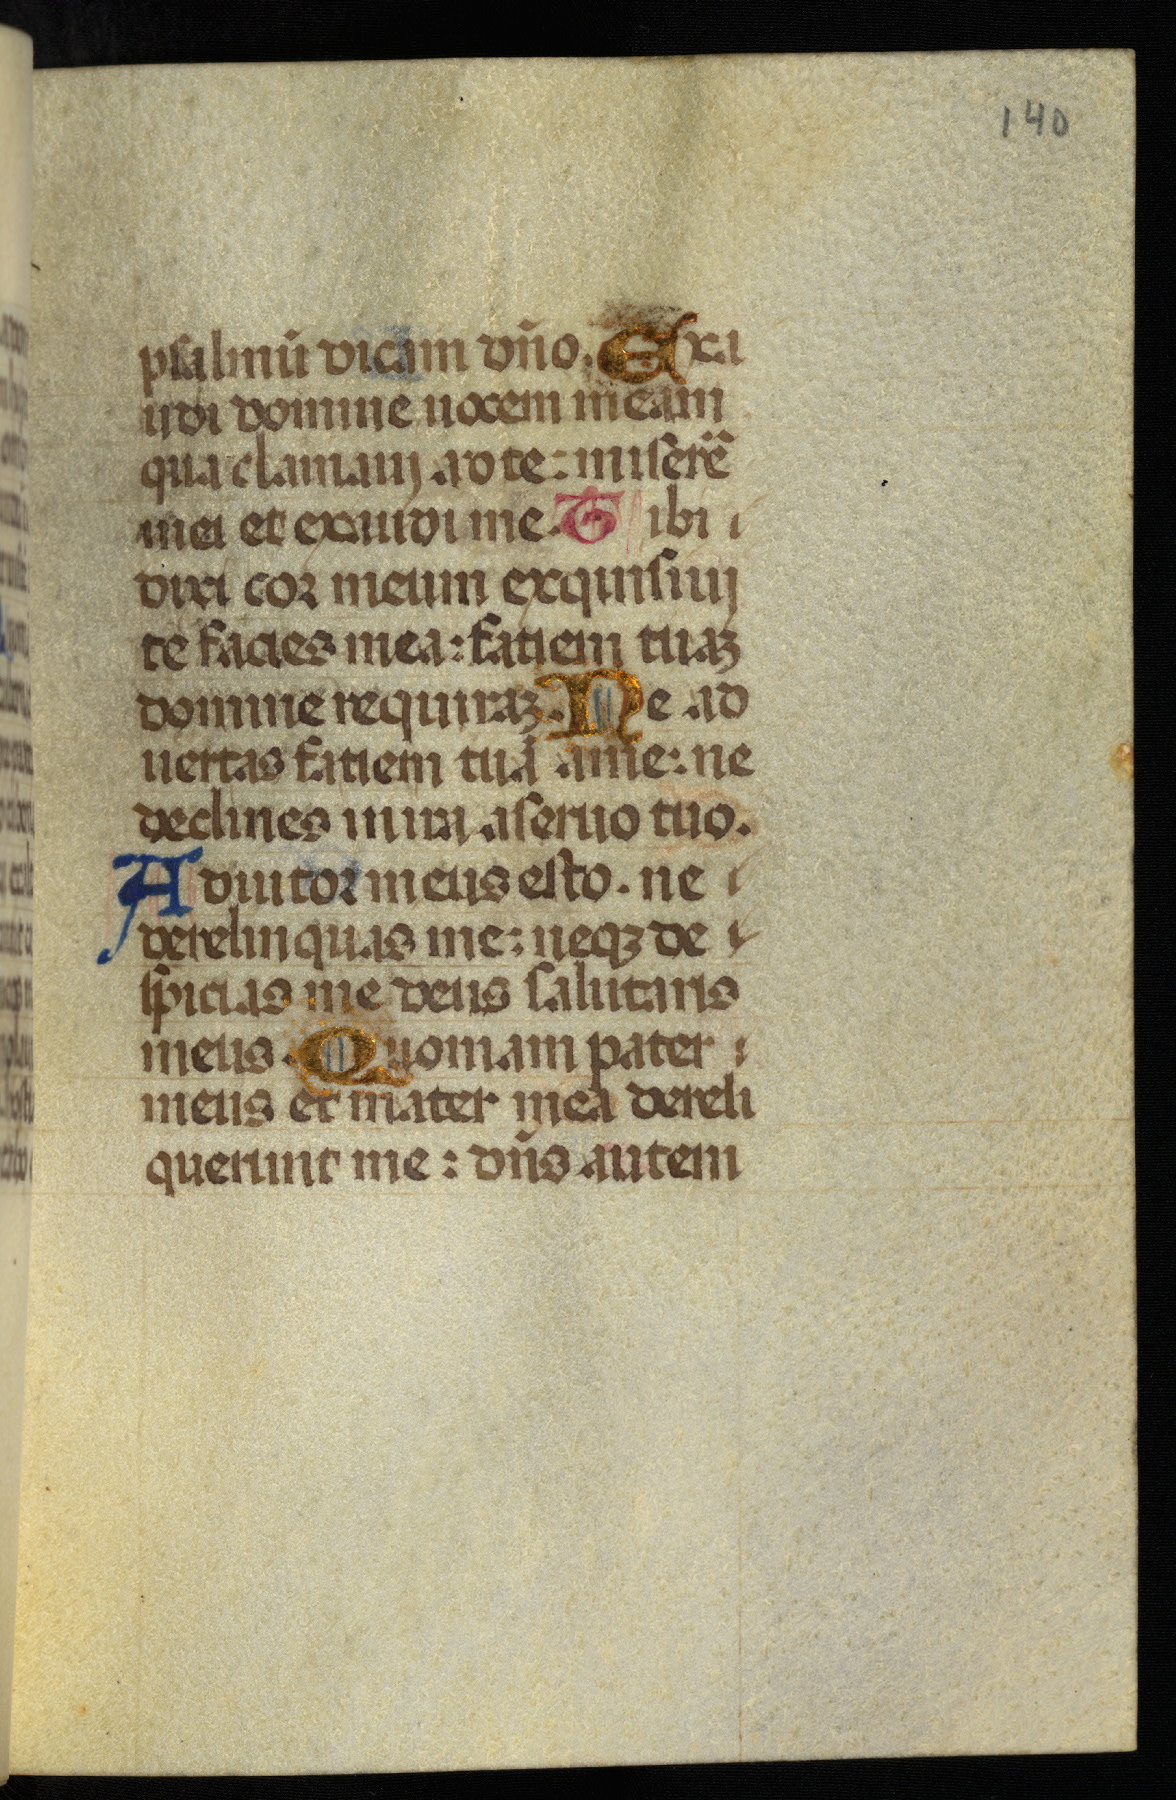 140
psalmū dicam dn̄o. Exa
udi domine uocem meam
qua clamaui ad te: miserē
mei et exaudi me. Tibi
dixi cor meum exquisiuit
te facies mea: fatiem tuaꝫ
domine requiraꝫ. Ne ad
uertas fatiem tuā ame: ne
declines in ira aseruo tuo.
Adiutor meus esto. ne
derelinquas me: neqꝫ de
spicias me deus salutaris
meus. Quoniam pater
meus et mater mea dereli
querunt me: dn̄s autem